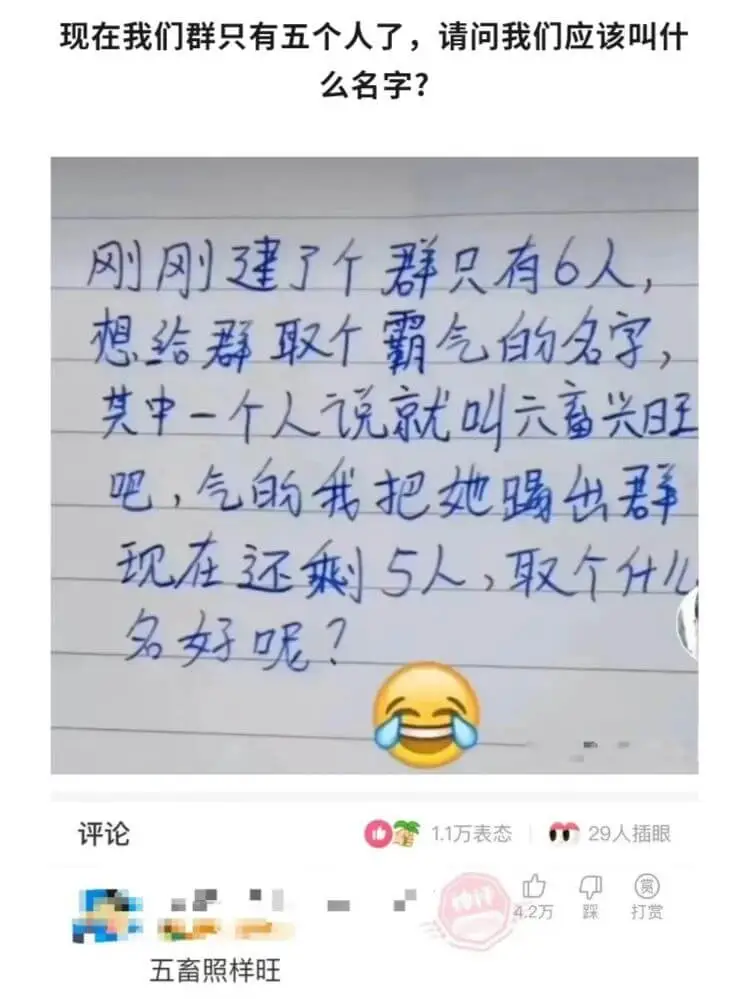 现在我们群只有五个人了，请问我们应该叫什
么名字?
刚刚建了个群只有6人，
想给群取个霸气的名字，
其中一个人说就叫六畜兴旺
吧，气的我把她踢出群
现在还剩5人，取个什么
名好呢？
评论
1.1万表态
29人插眼
4.2万
踩
打赏
五畜照样旺